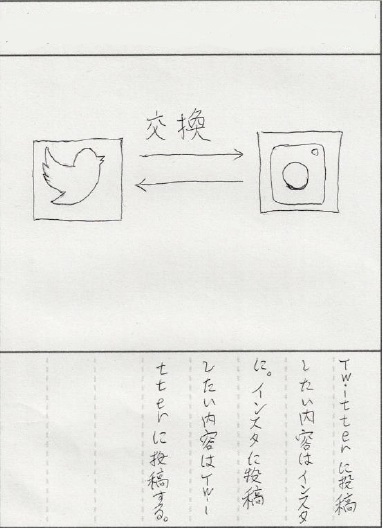 交換
Twitterに投稿
したい内容はインスタ
に。インスタに投稿
したい内容はTwi
tterに投稿する。